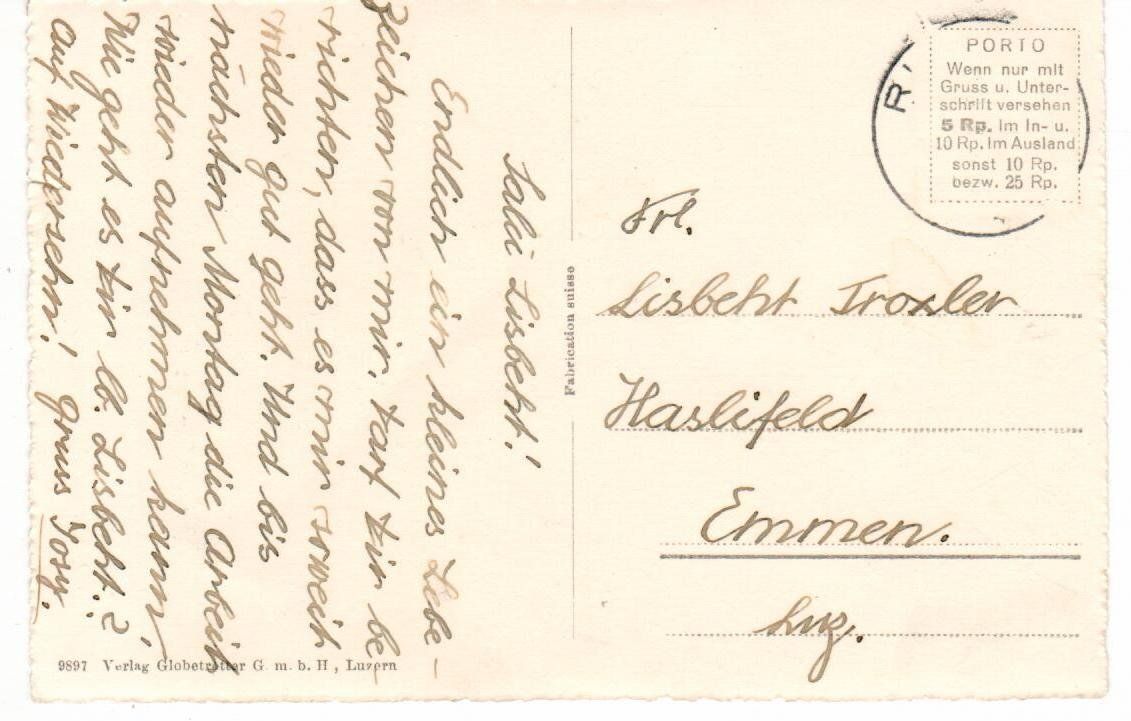 Salü Lisbeht!
Endlich ein kleines Lebe-
zeichen von mir. Darf dir be-
richten, dass es mir soweit
wieder gut geht. Und bis
nächsten Montag die Arbeit
wieder aufnehmen kann.
Wie geht es dir lb. Lisbeht.?
auf Wiedersehn! Gruss Josy.
9897 Verlag Globetrotter G. m. b. H, Luzern
Fabrication suisse
R.
PORTO
Wenn nur mit
Gruss u. Unter-
schrift versehen
5 Rp. im In- u.
10 Rp. im Ausland
sonst 10 Rp.
bezw. 25 Rp.
Frl.
Lisbeht Troxler
Haslifeld
Emmen.
Luz.